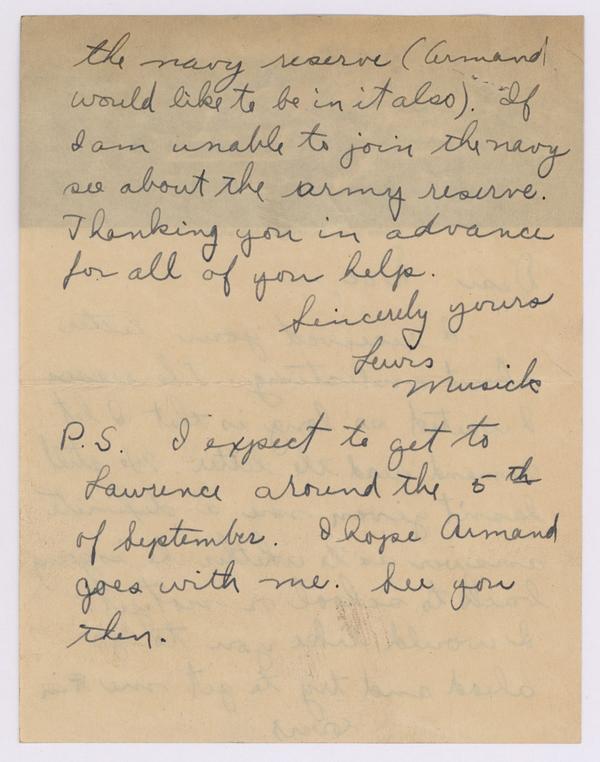 the navy reserve (Armand
would like to be in it also). If
I am unable to join the navy
see about the army reserve.
Thanking you in advance
for all of you help.
Sincerely yours
Lewis
Musick
P.S. I expect to get to
Lawrence around the 5th
of September. I hope Armand
goes with me. See you
then.